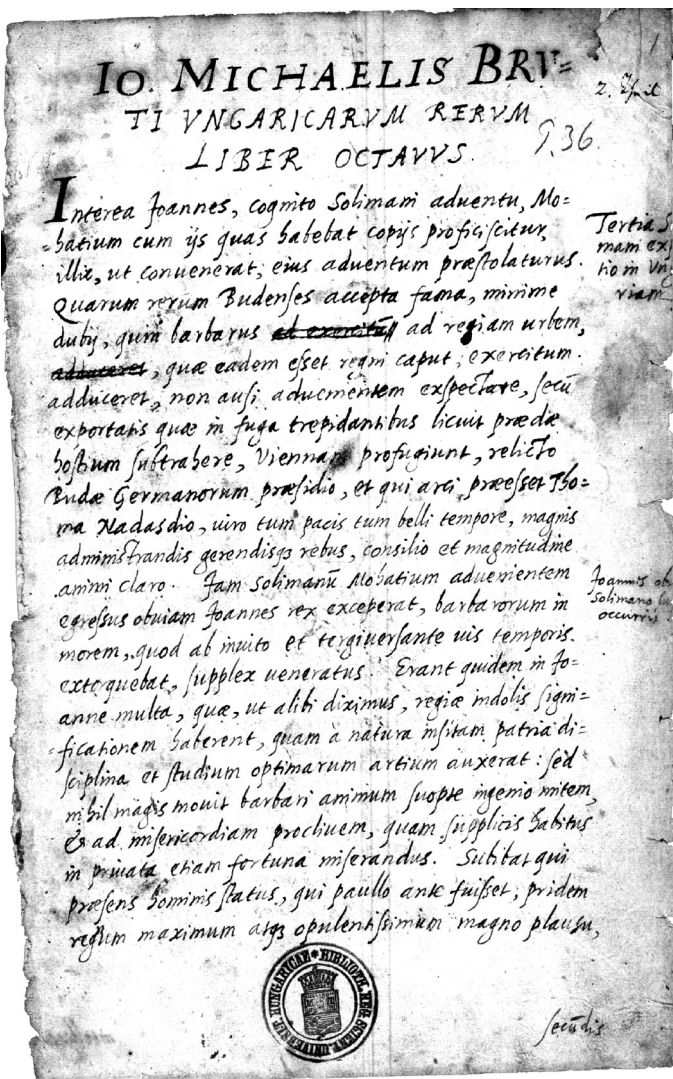 IO. MICHAELIS BRV=
TI VNGARICARVM RERVM
LIBER OCTAVVS.
936
1
Interea Joannes, cognito Solimani aduentu, Mo=
hatium cum ijs quas habebat copijs proficiscitur,
illic, ut conuenerat, eius aduentum præstolaturus.
Quarum rerum Budenses accepta fama, minime
dubij, quin barbarus ad exercitū ad regiam urbem,
adduceret, quæ eadem esset regni caput, exercitum.
adduceret, non ausi aduenientem exspectare, secū
exportatis quæ in fuga trepidantibus licuit prædæ
hostium subtrahere, Viennam profugiunt, relicto
Budæ Germanorum præsidio, et qui arci præesset Tho=
ma Nadasdio, uiro tum pacis tum belli tempore, magnis
administrandis gerendisq3 rebus, consilio et magnitudine
animi claro. Jam Solimanū Mohatium aduenientem
egressus obuiam Joannes rex exceperat, barbarorum in
morem, quod ab inuito et tergiuersante uis temporis.
extorquebat, supplex ueneratus. Erant quidem in Jo=
anne multa, quæ, ut alibi diximus, regiæ indolis signi=
ficationem haberent, quam à natura insitam patria di=
sciplina et studium optimarum artium auxerat: sed
nihil magis mouit barbari animum suopte ingenio mitem,
& ad misericordiam procliuem, quam supplicis habitus
in priuata etiam fortuna miserandus. Subibat qui
præsens hominis status, qui paullo ante fuisset, pridem
regum maximum atq3 opulentissimum magno plausu,
secūdis
Tertia
mam ex
tio in Vn
riam
Joannis
Solimano
occurris
BIBLIOTH. REG. SCIENT. VNIVERSIT. HUNGARICAE